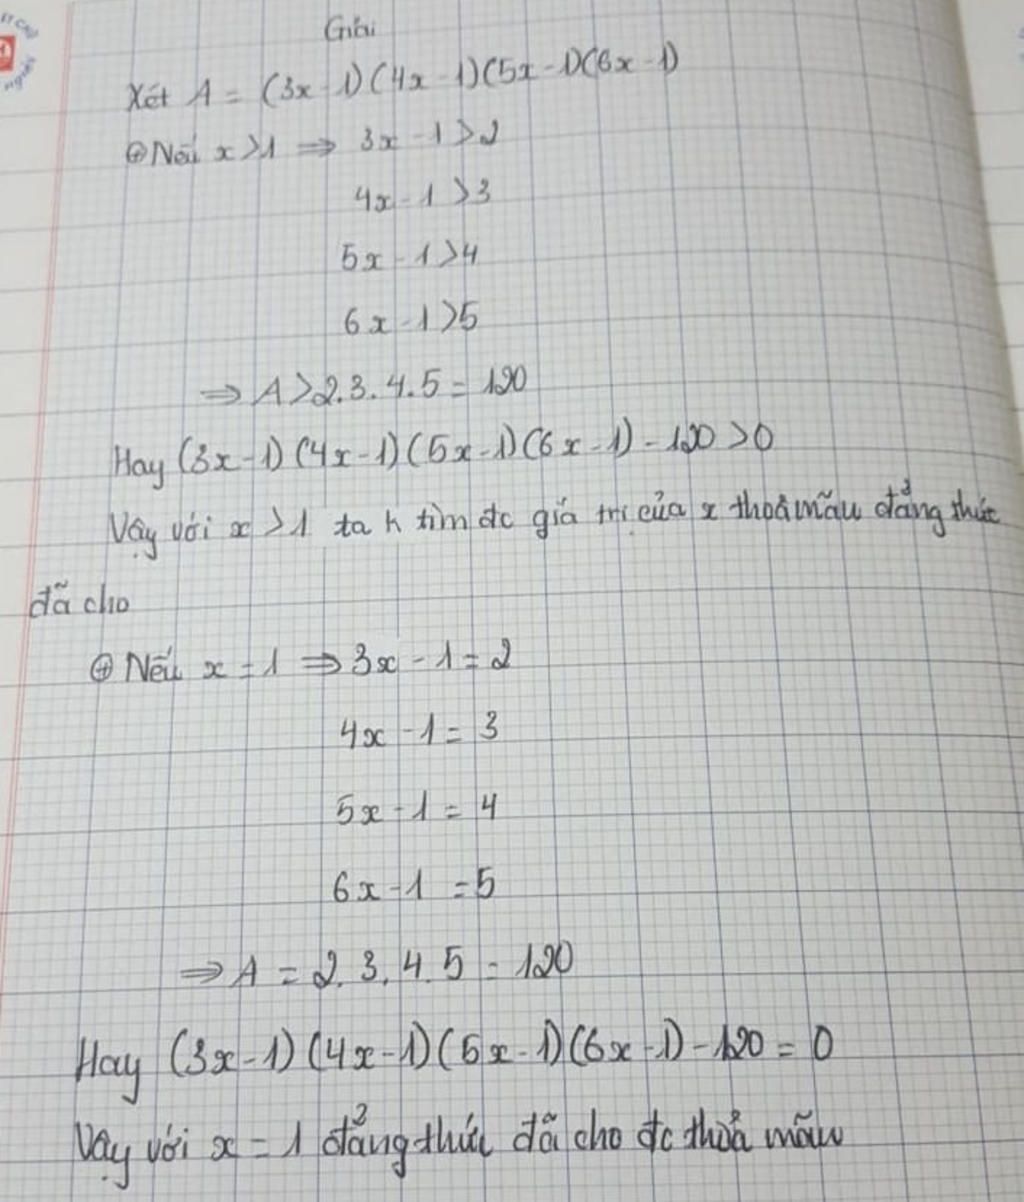 Giải
Xét A = (3x-1)(4x-1)(5x-1)(6x-1)
⊕ Nếu x>1 ⇒ 3x-1>2
4x-1>3
5x-1>4
6x-1>5
⇒ A>2.3.4.5 = 120
Hay (3x-1)(4x-1)(5x-1)(6x-1)-120>0
Vậy với x>1 ta k tìm đc giá trị của x thoả mãn đẳng thức
đã cho
⊕ Nếu x=1 ⇒ 3x-1=2
4x-1=3
5x-1=4
6x-1=5
⇒ A = 2.3.4.5 = 120
Hay (3x-1)(4x-1)(5x-1)(6x-1)-120=0
Vậy với x=1 đẳng thức đã cho đc thoả mãn